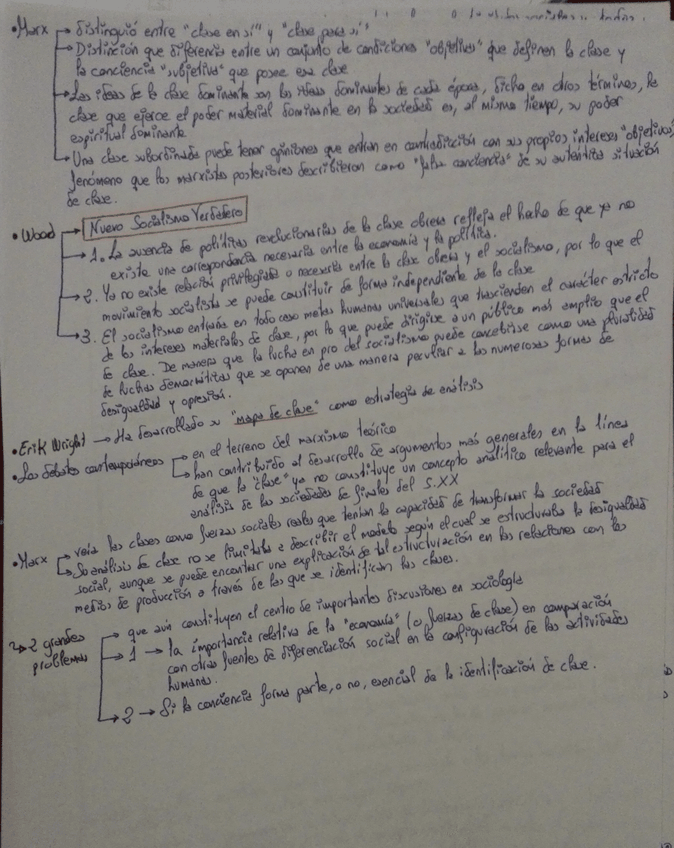 • Marx → distinguió entre "clase en sí" y "clase para sí"
→ Distinción que diferencia entre un conjunto de condiciones "objetivas" que definen la clase y
la conciencia "subjetiva" que posee esa clase
→ Las ideas de la clase dominante son las ideas dominantes de cada época, dicho en otros términos, la
clase que ejerce el poder material dominante en la sociedad es, al mismo tiempo, su poder
espiritual dominante
→ Una clase subordinada puede tener opiniones que entran en contradicción con sus propios intereses "objetivos",
fenómeno que los marxistas posteriores describieron como "falsa conciencia" de su auténtica situación
de clase.
• Wood → Nuevo Socialismo Verdadero
→ 1. La ausencia de políticas revolucionarias de la clase obrera refleja el hecho de que ya no
existe una correspondencia necesaria entre la economía y la política.
→ 2. Ya no existe relación privilegiada o necesaria entre la clase obrera y el socialismo, por lo que el
movimiento socialista se puede constituir de forma independiente de la clase
→ 3. El socialismo entraña en todo caso metas humanas universales que trascienden el carácter estricto
de los intereses materiales de clase, por lo que puede dirigirse a un público más amplio que el
de clase. De manera que la lucha en pro del socialismo puede concebirse como una pluralidad
de luchas democráticas que se oponen de una manera peculiar a las numerosas formas de
desigualdad y opresión.
• Erik Wright → Ha desarrollado su "mapa de clase" como estrategia de análisis
• Los debates contemporáneos → en el terreno del marxismo teórico
→ han contribuido al desarrollo de argumentos más generales en la línea
de que la "clase" ya no constituye un concepto analítico relevante para el
análisis de las sociedades de finales del S.XX
• Marx → veía las clases como fuerzas sociales reales que tenían la capacidad de transformar la sociedad
→ Su análisis de clase no se limitaba a describir el modelo según el cual se estructuraba la desigualdad
social, aunque se puede encontrar una explicación de tal estructuración en las relaciones con los
medios de producción a través de las que se identifican las clases.
→ 2 grandes
problemas → que aún constituyen el centro de importantes discusiones en sociología
→ 1 → la importancia relativa de la "economía" (o fuerzas de clase) en comparación
con otras fuentes de diferenciación social en la configuración de las actividades
humanas.
→ 2 → Si la conciencia forma parte, o no, esencial de la identificación de clase.